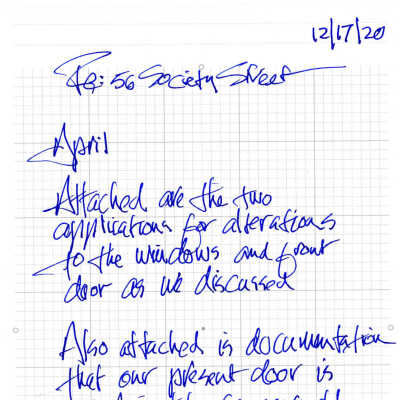 12/17/20
Re: 56 Society Street
April
Attached are the two
applications for alterations
to the windows and front
door as we discussed
Also attached is documentation
that our present door is